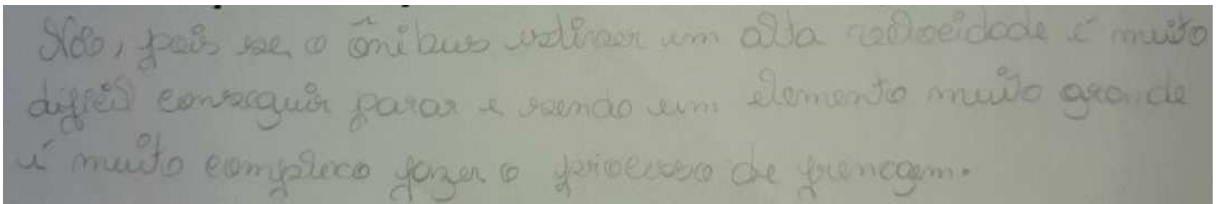 Não, pois se o ônibus estiver em alta velocidade é muito
difícil conseguir parar e sendo um elemento muito grande
é muito complexo fazer o processo de frenagem.